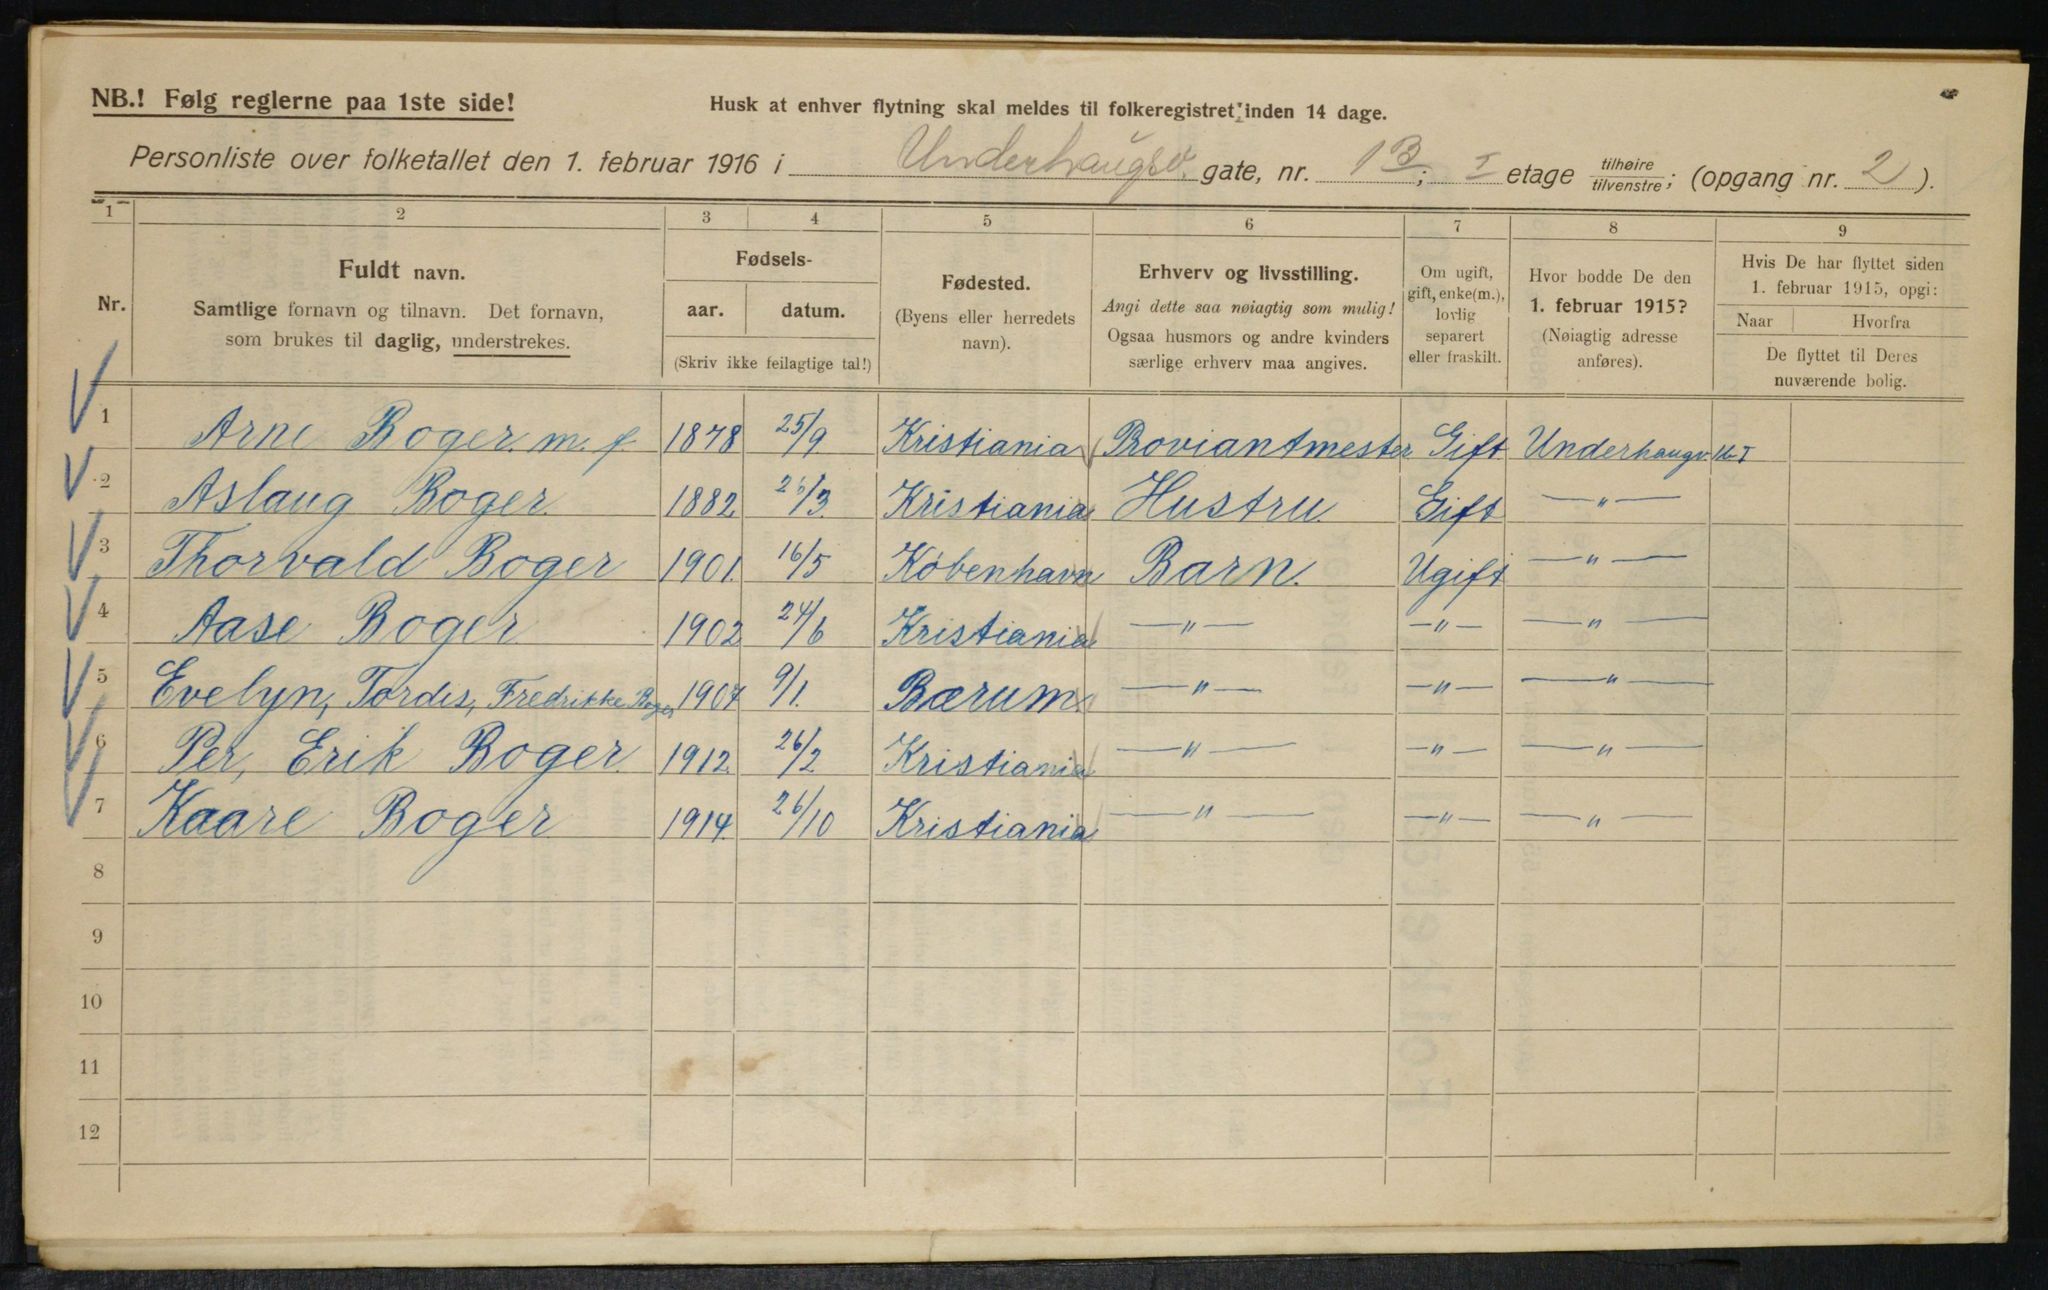 NB.! Følg reglerne paa 1ste side!
Husk at enhver flytning skal meldes til folkeregistret inden 14 dage.
Personliste over folketallet den 1. februar 1916 i Underhaugsv. gate, nr. 1B; I etage tilhøire/tilvenstre; (opgang nr. 2).
1 2 3 4 5 6 7 8 9
Nr.
Fuldt navn.
Samtlige fornavn og tilnavn. Det fornavn,
som brukes til daglig, understrekes.
Fødsels-
aar. datum.
(Skriv ikke feilagtige tal!)
Fødested.
(Byens eller herredets
navn).
Erhverv og livsstilling.
Angi dette saa nøiagtig som mulig!
Ogsaa husmors og andre kvinders
særlige erhverv maa angives.
Om ugift,
gift, enke(m.),
lovlig
separert
eller fraskilt.
Hvor bodde De den
1. februar 1915?
(Nøiagtig adresse
anføres).
Hvis De har flyttet siden
1. februar 1915, opgi:
Naar Hvorfra
De flyttet til Deres
nuværende bolig.
1 Arne Boger. m. f. 1878 25/9 Kristiania Proviantmester Gift Underhaugv.
2 Aslaug Boger. 1882 26/3 Kristiania Hustru. Gift —"—
3 Thorvald Boger 1901. 16/5 København Barn. Ugift —"—
4 Aase Boger 1902 24/6 Kristiania —"— —"— —"—
5 Evelyn, Tordis, Fredrikke Boger 1907 9/1. Bærum. —"— —"— —"—
6 Per, Erik Boger. 1912. 26/2 Kristiania —"— —"— —"—
7 Kaare Boger 1914. 26/10 Kristiania —"— —"— —"—
8
9
10
11
12